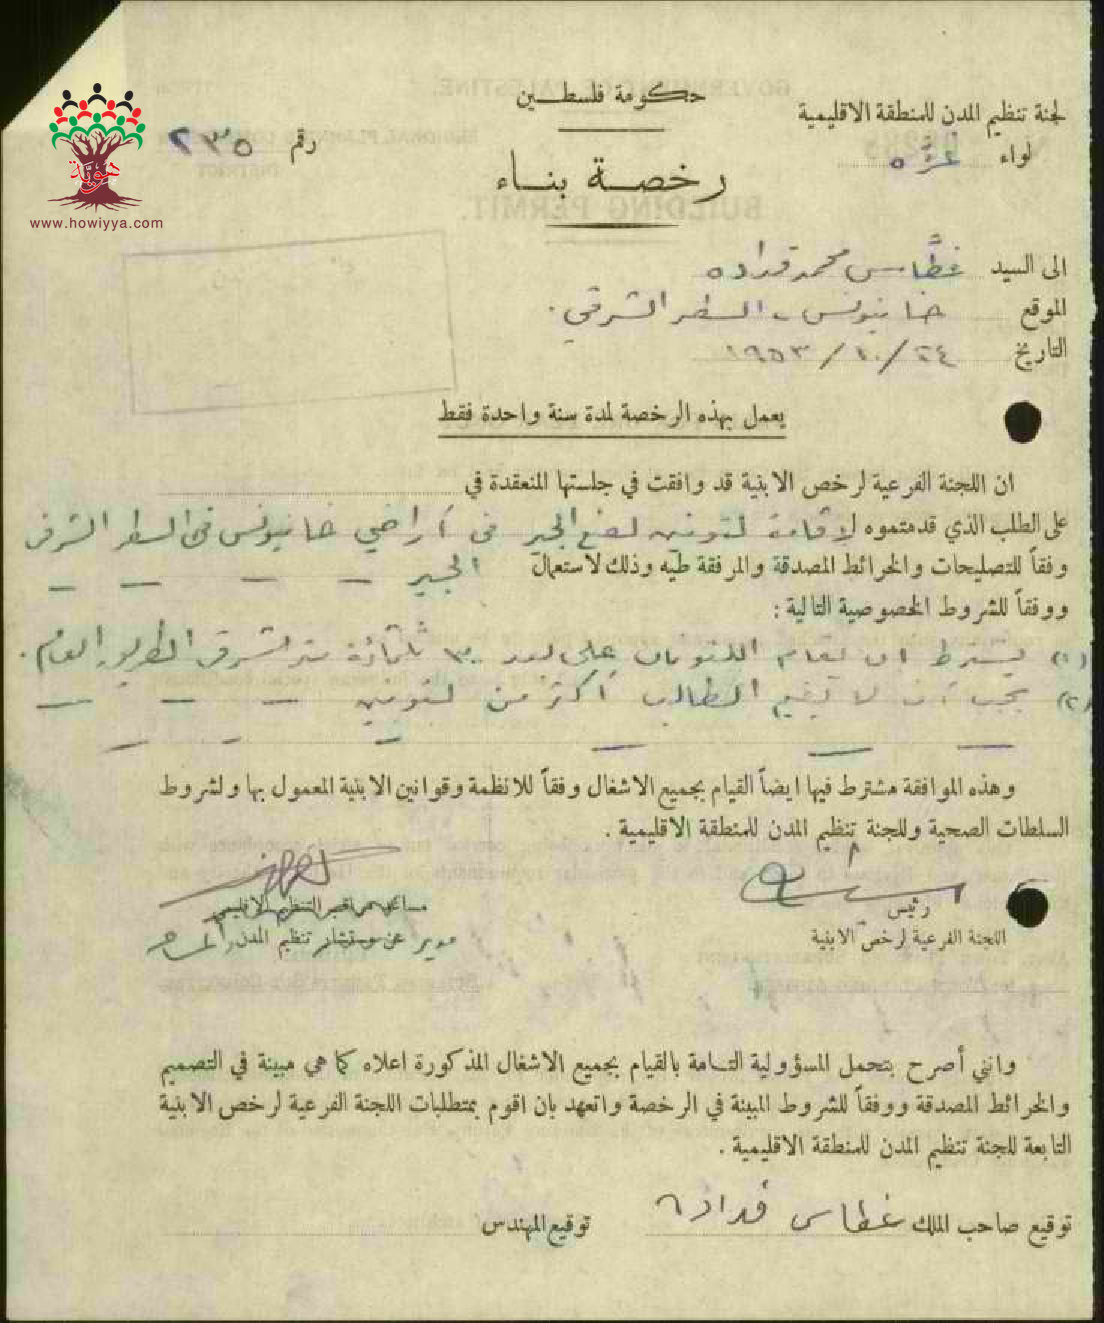 حكومة فلسطين
لجنة تنظيم المدن للمنطقة الاقليمية
لواء غزه
رقم ٢٣٥
هوية
www.howiyya.com
رخصة بناء
الى السيد غطاس محمد قداده
الموقع خانيونس - السطر الشرقي .
التاريخ ٢٤/١٠/١٩٥٣
يعمل بهذه الرخصة لمدة سنة واحدة فقط
ان اللجنة الفرعية لرخص الابنية قد وافقت في جلستها المنعقدة في
على الطلب الذي قدمتموه لاقامة لتونين لصنع الجير في أراضي خانيونس في السطر الشرقي
وفقاً للتصليحات والخرائط المصدقة والمرفقة طيه وذلك لاستعمال الجير
ووفقاً للشروط الخصوصية التالية :
(١) يشترط ان تقام اللتونان على بعد ٣٠٠ ثلثمائة متر لشرق الطريق العام .
(٢) يجب أن لا يقيم الطالب أكثر من لتونين
وهذه الموافقة مشترط فيها ايضاً القيام بجميع الاشغال وفقاً للانظمة وقوانين الابنية المعمول بها ولشروط
السلطات الصحية وللجنة تنظيم المدن للمنطقة الاقليمية .
رئيس
اللجنة الفرعية لرخص الابنية
مدير عن مستشار تنظيم المدن
وانني أصرح بتحمل المسؤولية التامة بالقيام بجميع الاشغال المذكورة اعلاه كما هي مبينة في التصميم
والخرائط المصدقة ووفقاً للشروط المبينة في الرخصة واتعهد بان اقوم بمتطلبات اللجنة الفرعية لرخص الابنية
التابعة للجنة تنظيم المدن للمنطقة الاقليمية .
توقيع صاحب الملك غطاس قداده
توقيع المهندس